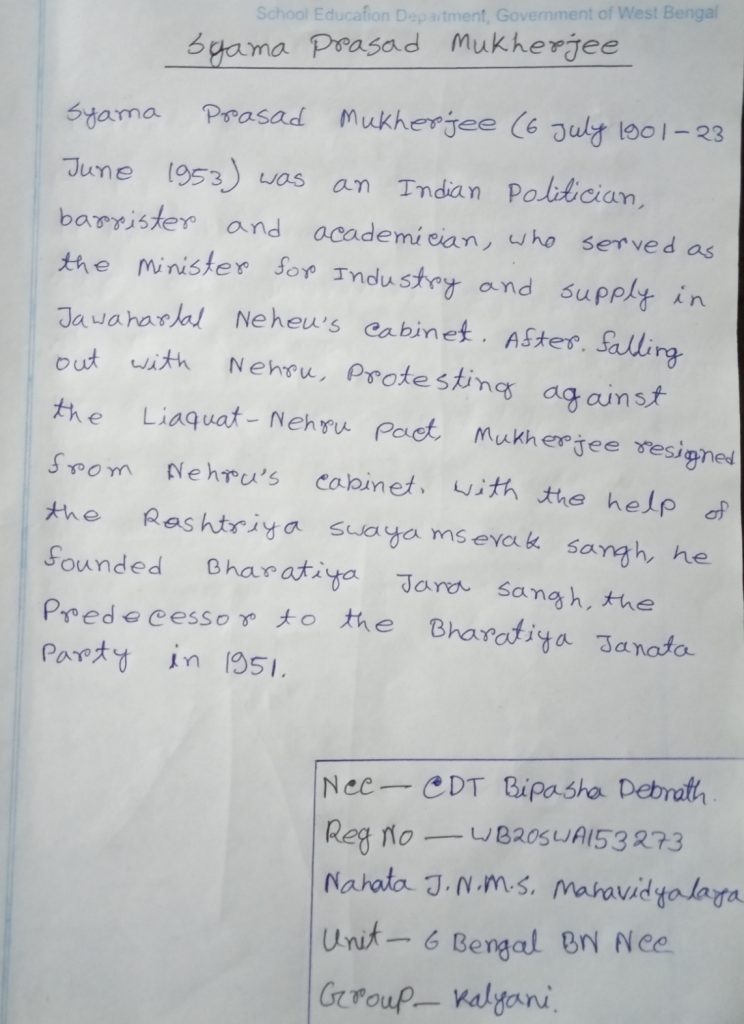 School Education Department, Government of West Bengal
Syama Prasad Mukherjee
Syama Prasad Mukherjee (6 July 1901-23
June 1953) was an Indian Politician,
barrister and academician, who served as
the Minister for Industry and supply in
Jawaharlal Neheu's cabinet. After. falling
out with Nehru, Protesting against
the Liaquat-Nehru Pact, Mukherjee resigned
from Nehru's cabinet. with the help of
the Rashtriya swayamsevak sangh, he
founded Bharatiya Jana sangh, the
Predecessor to the Bharatiya Janata
Party in 1951.
Ncc — CDT Bipasha Debnath.
Reg No — WB20SWA153273
Nahata J.N.M.S. Mahavidyalaya
Unit — 6 Bengal BN Ncc
Group — Kalyani.